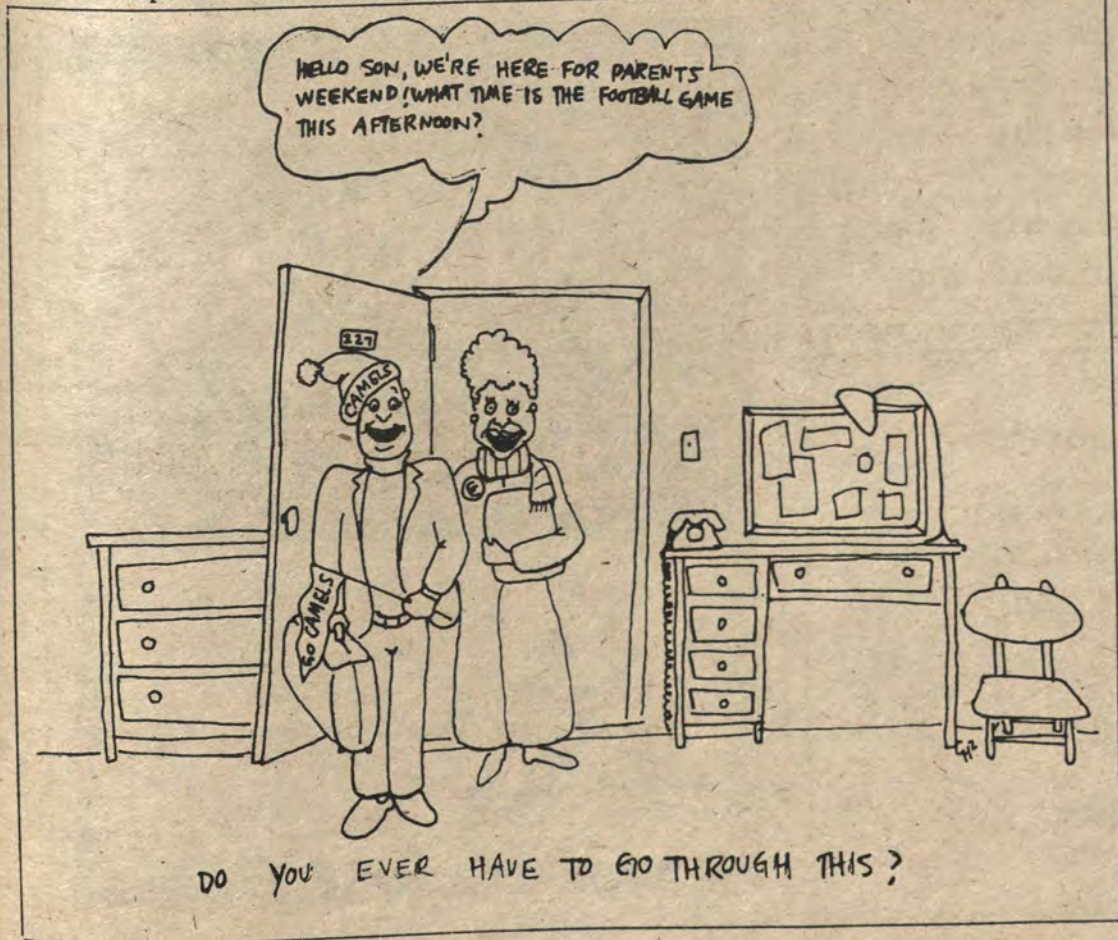 HELLO SON, WE'RE HERE FOR PARENTS
WEEKEND! WHAT TIME IS THE FOOTBALL GAME
THIS AFTERNOON?
227
CAMELS
GO CAMELS
DO YOU EVER HAVE TO GO THROUGH THIS?